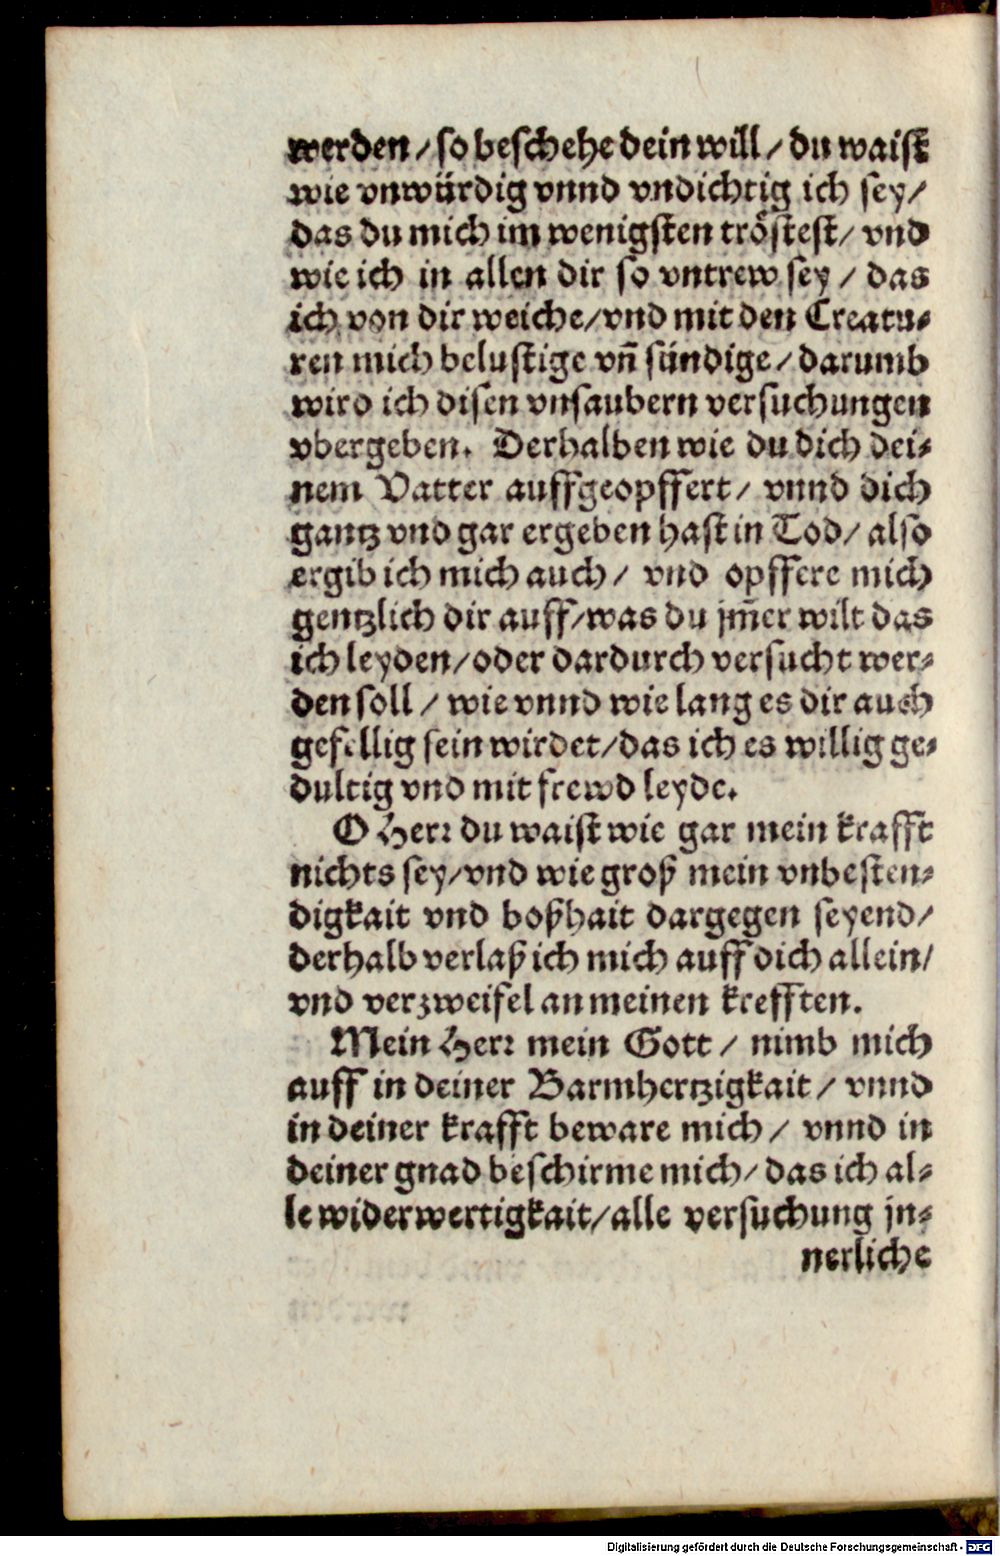 werden / so beschehe dein will / du waist
wie vnwürdig vnnd vndichtig ich sey /
das du mich im wenigsten tröstest / vnd
wie ich in allen dir so vntrew sey / das
ich von dir weiche / vnd mit den Creatu⸗
ren mich belustige vñ sündige / darumb
wird ich disen vnsaubern versuchungen
vbergeben. Derhalben wie du dich dei⸗
nem Vatter auffgeopffert / vnnd dich
gantz vnd gar ergeben hast in Tod / also
ergib ich mich auch / vnd opffere mich
gentzlich dir auff / was du jm̃er wilt das
ich leyden / oder dardurch versucht wer⸗
den soll / wie vnnd wie lang es dir auch
gefellig sein wirdet / das ich es willig ge⸗
dultig vnd mit frewd leyde.
O Herr du waist wie gar mein krafft
nichts sey / vnd wie groß mein vnbesten⸗
digkait vnd boßhait dargegen seyend /
derhalb verlaß ich mich auff dich allein /
vnd verzweifel an meinen krefften.
Mein Herr mein Gott / nimb mich
auff in deiner Barmhertzigkait / vnnd
in deiner krafft beware mich / vnnd in
deiner gnad beschirme mich / das ich al⸗
le widerwertigkait / alle versuchung jn⸗
nerliche
Digitalisierung gefördert durch die Deutsche Forschungsgemeinschaft - DFG